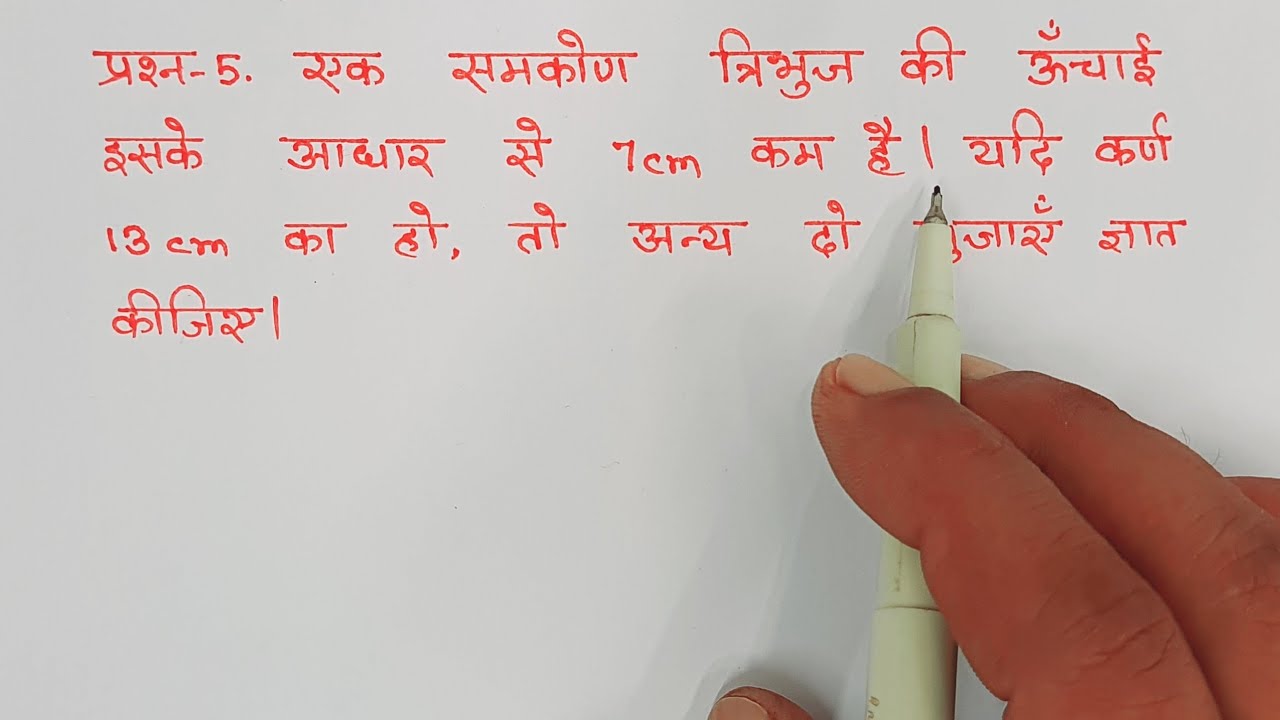 प्रश्न-5. एक समकोण त्रिभुज की ऊँचाई
इसके आधार से 7cm कम है। यदि कर्ण
13 cm का हो, तो अन्य दो भुजाएँ ज्ञात
कीजिए।